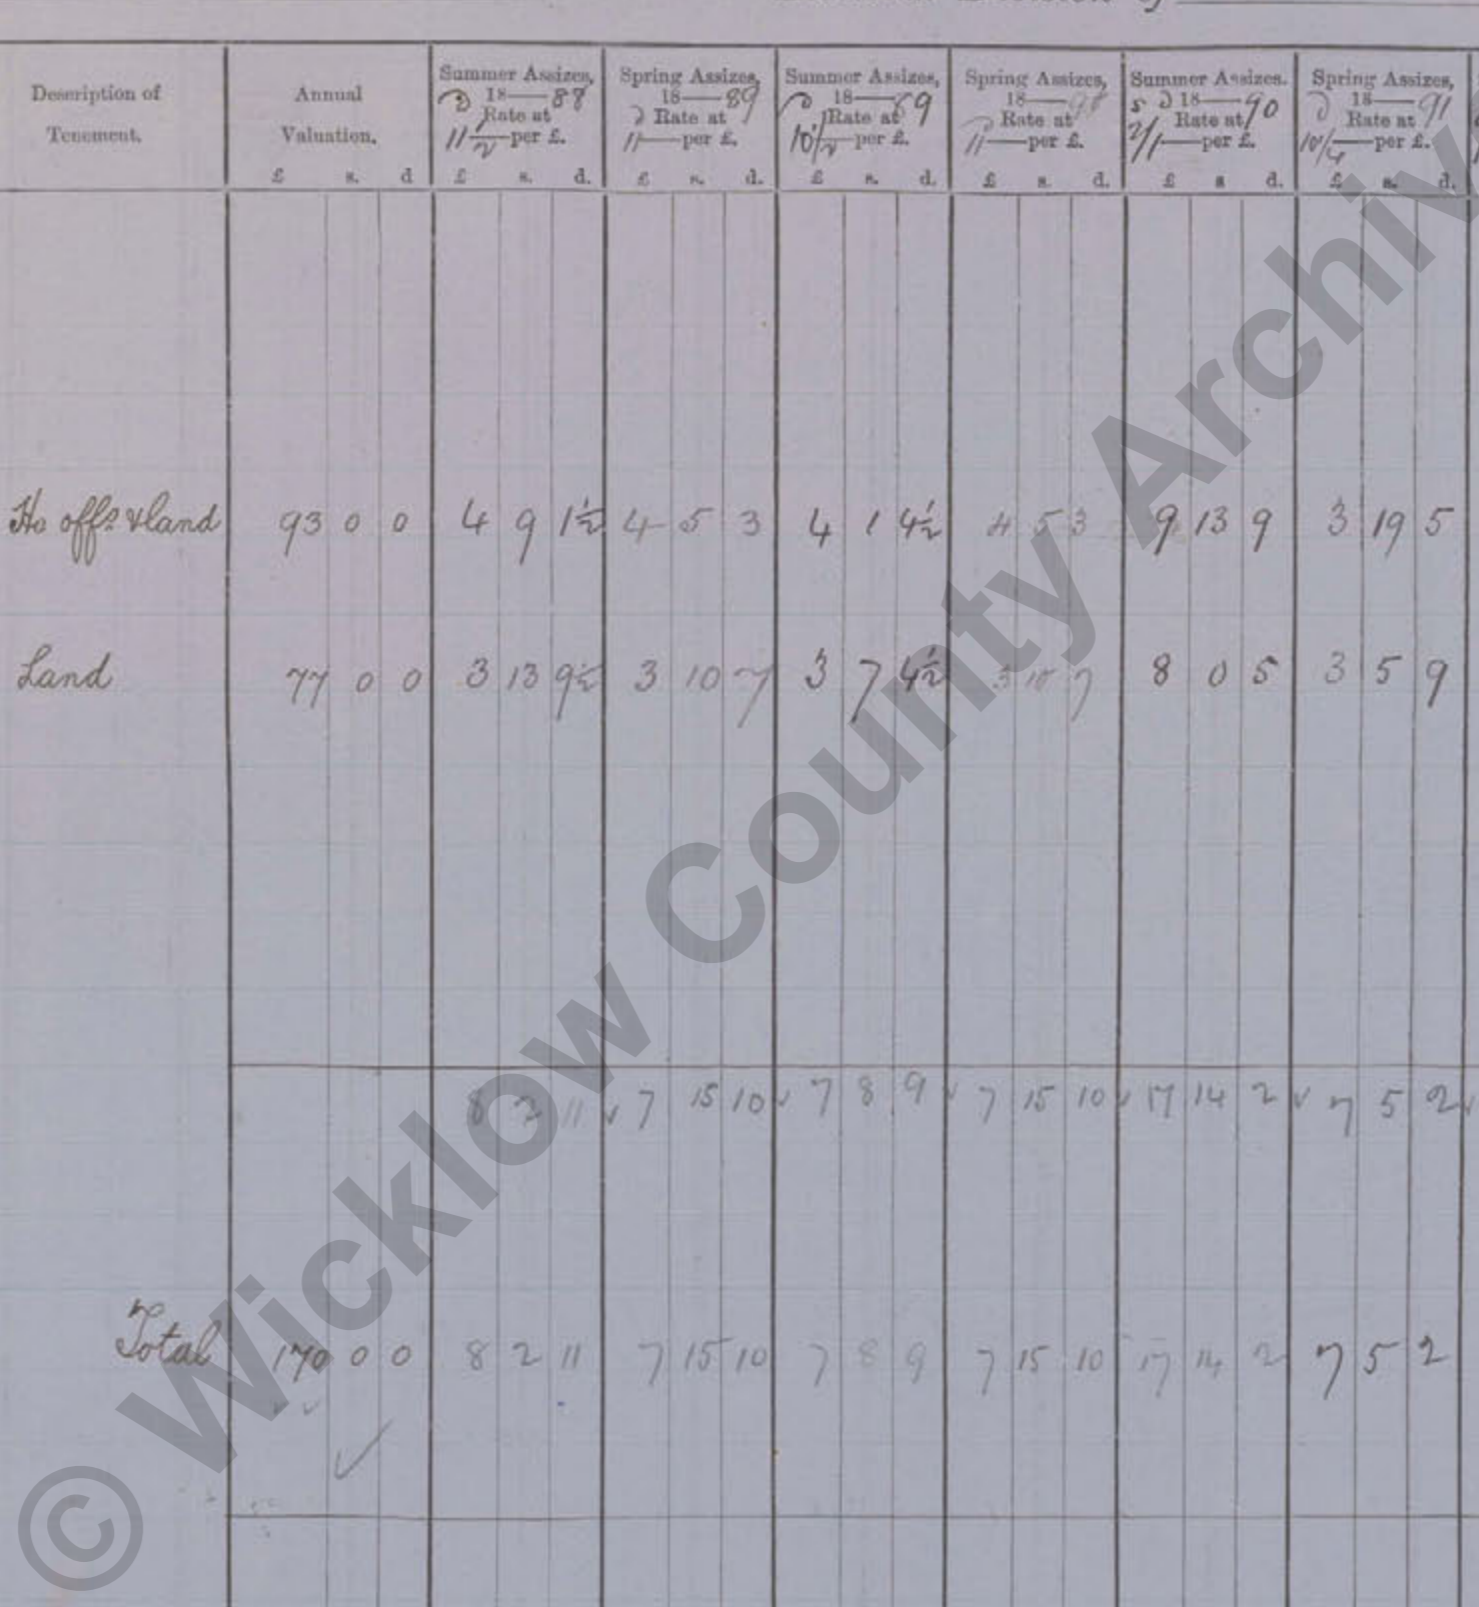 Description of Tenement. | Annual Valuation. | Summer Assizes, 1888 Rate at 11½ d per £. | Spring Assizes, 1889 Rate at 11 d per £. | Summer Assizes, 1889 Rate at 10½ d per £. | Spring Assizes, 1890 Rate at 11 d per £. | Summer Assizes. 1890 s d Rate at 2/1 per £. | Spring Assizes, 1891 Rate at 10¼ d per £.
£ s. d | £ s. d. | £ s. d. | £ s. d. | £ s. d. | £ s d. | £ s. d.
Ho offs & land | 93 0 0 | 4 9 1½ | 4 5 3 | 4 1 4½ | 4 5 3 | 9 13 9 | 3 19 5
Land | 77 0 0 | 3 13 9½ | 3 10 7 | 3 7 4½ | 3 10 7 | 8 0 5 | 3 5 9
8 2 11 | 7 15 10 | 7 8 9 | 7 15 10 | 17 14 2 | 7 5 2
Total | 170 0 0 | 8 2 11 | 7 15 10 | 7 8 9 | 7 15 10 | 17 14 2 | 7 5 2
© Wicklow County Archiv